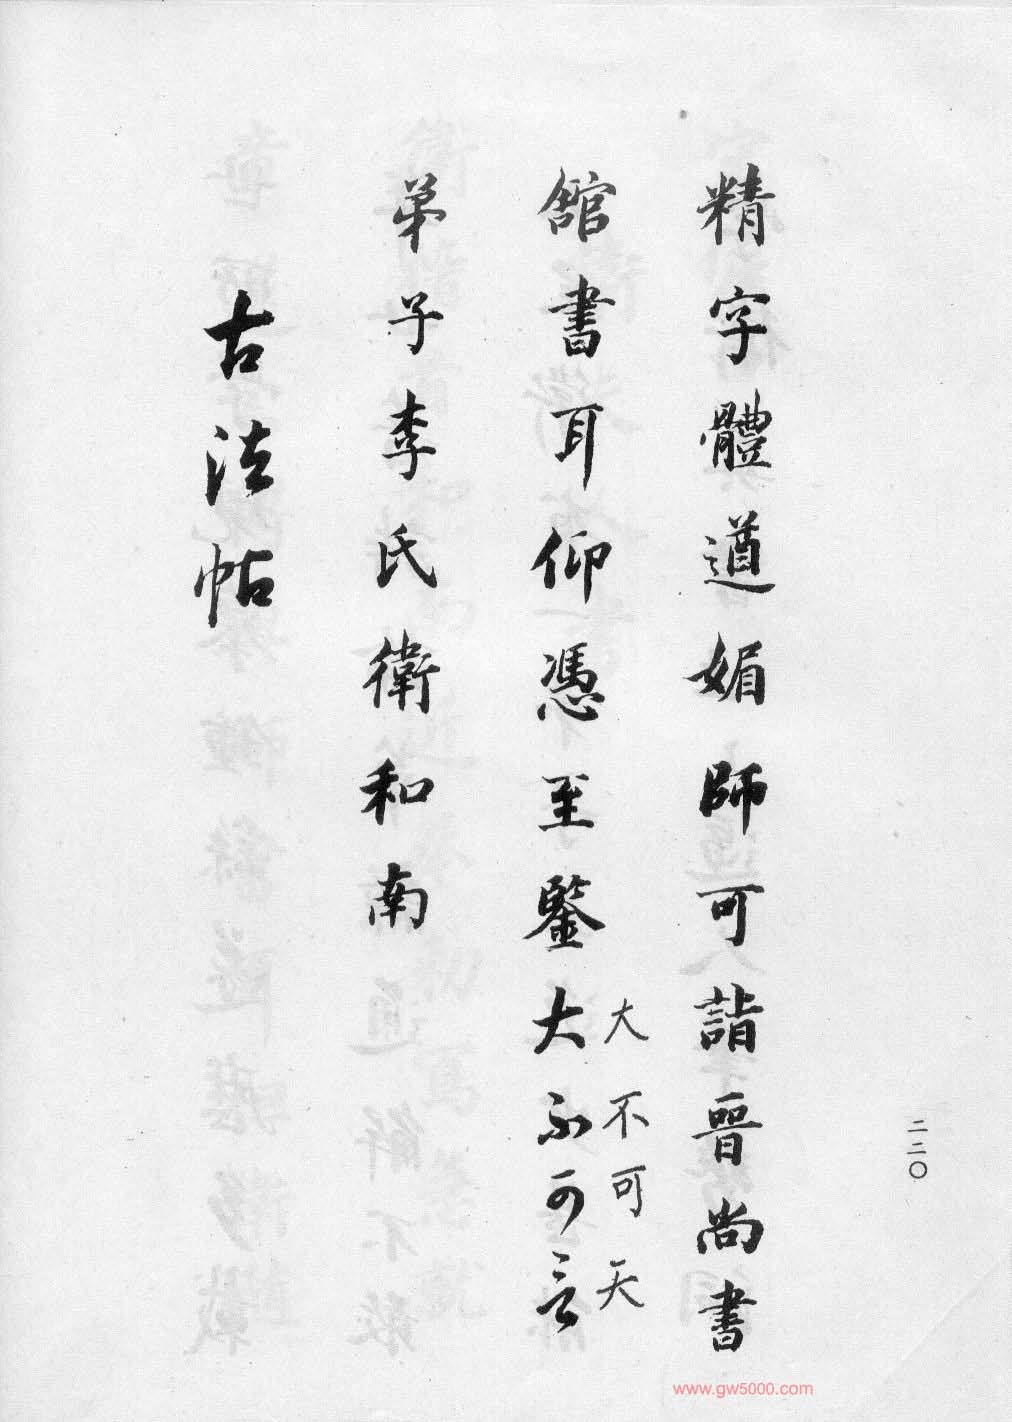 二二〇
精字體遒媚師可詣晉尚書
舘書耳仰憑至鑒大不可言
大不可天
弟子李氏衛和南
古法帖
www.gw5000.com